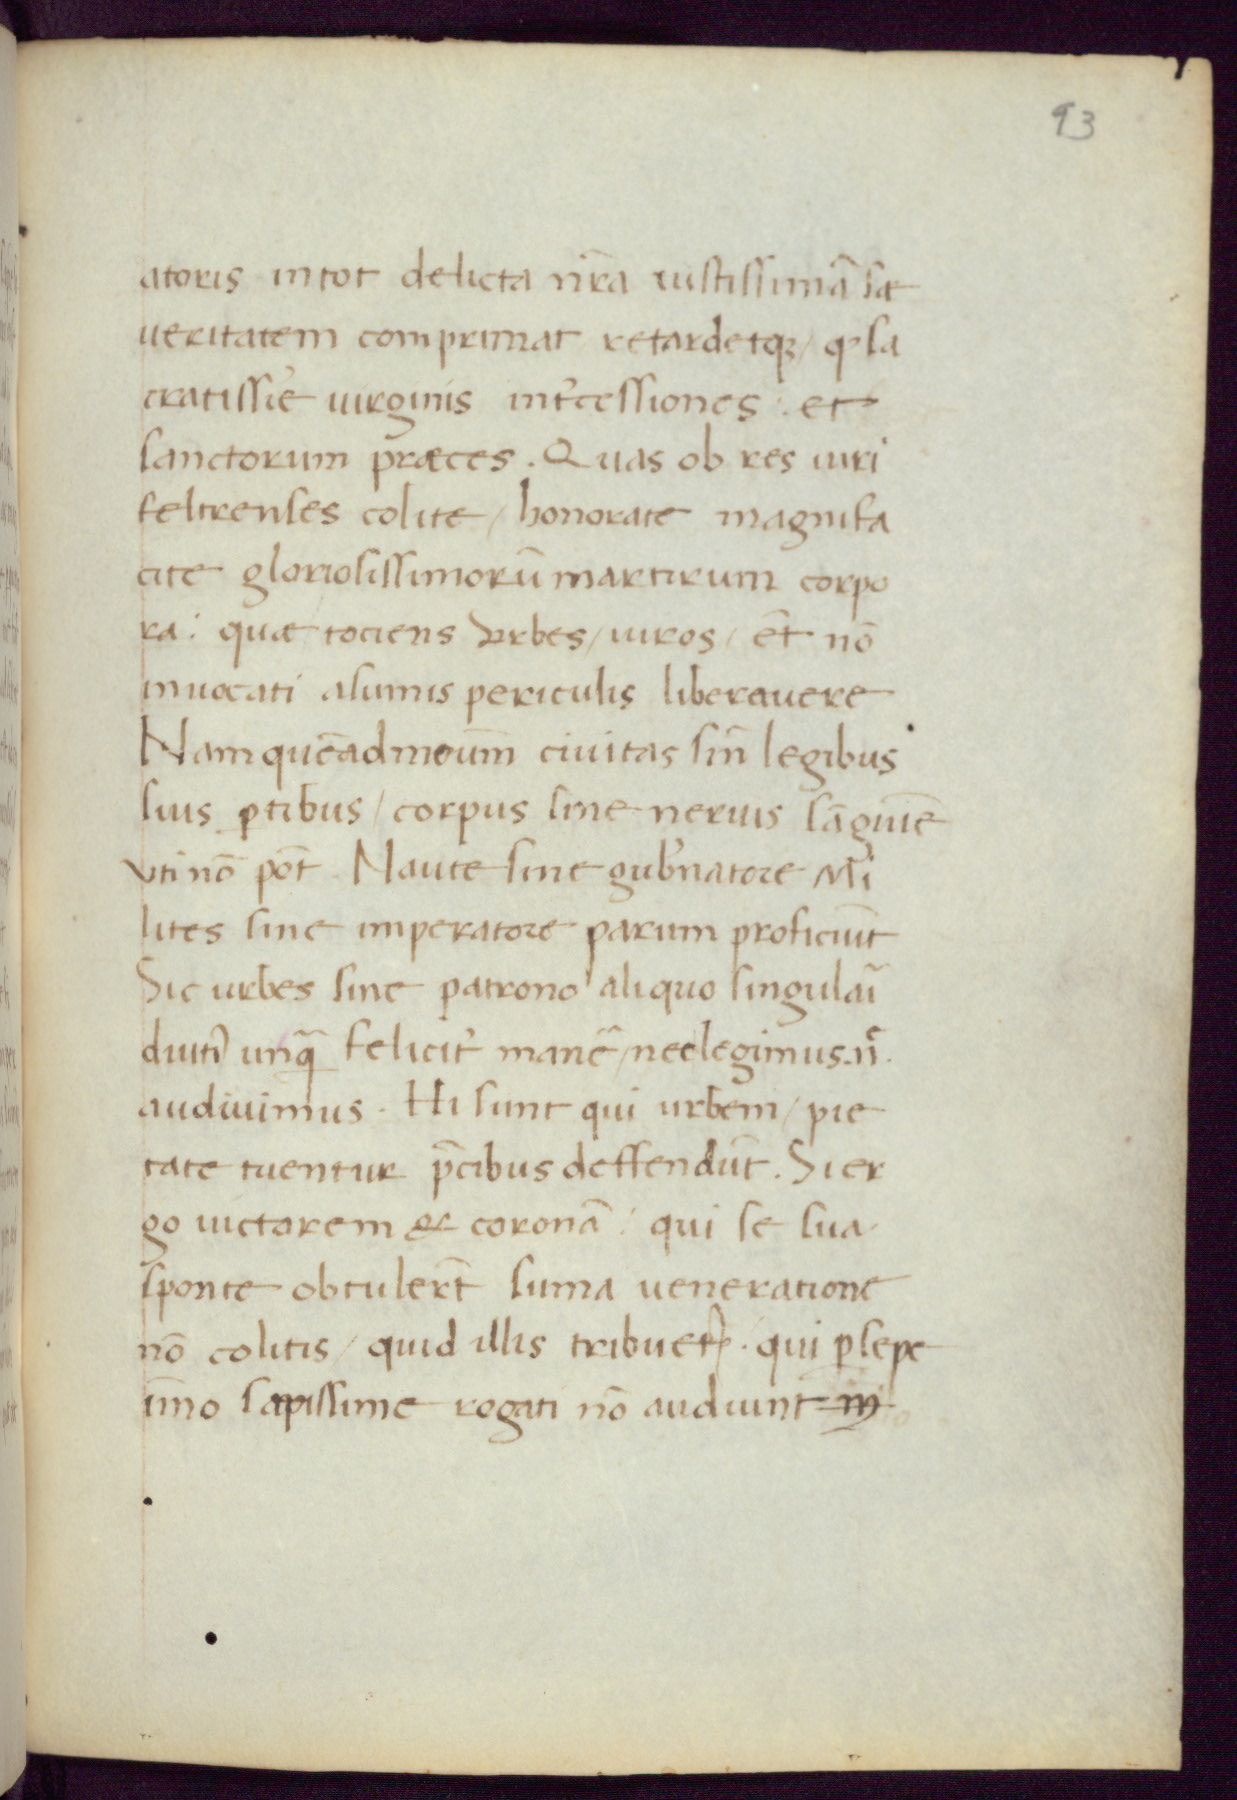 93
atoris in tot delicta nr̄a iustissimā sæ
ueritatem comprimat retardetq; / q̄ sa
cratissīe uirginis int̄cessiones : et
sanctorum præces . Quas ob res uiri
feltrenses colite / honorate magnifa
cite gloriosissimorū martirum corpo
ra : quæ tociens vrbes / uiros / et̄ nō
inuocati asumis periculis liberauere
Nam quēadmoum̄ ciuitas sin̄ legibus
suis ꝑtibus / corpus sine neruis sāguiē
vti nō pōt . Naute sine gub̄natore Mi
lites sine imperatore parum proficiūt
Sic urbes sine patrono aliquo singulaī
diuti᷑ unq̄ feliciť manē / nec legimus . nͤ .
audiuimus . Hi sunt qui urbem / pie
tate tuentur p̄cibus deffendūt . Si er
go uictorem & coronā : qui se sua
sponte obtulerт̄ suma ueneratione
nō colitis / quid illis tribuetꝭ . qui ꝑsepe
īmo sæpissime rogati nō audiunt